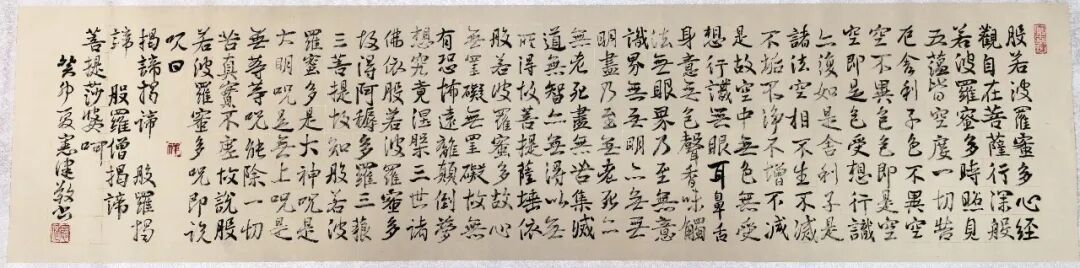 般若波羅蜜多心經
觀自在菩薩行深般
若波羅蜜多時照見
五蘊皆空度一切苦
厄舍利子色不異空
空不異色色即是空
空即是色受想行識
亦復如是舍利子是
諸法空相不生不滅
不垢不淨不增不減
是故空中無色無受
想行識無眼耳鼻舌
身意無色聲香味觸
法無眼界乃至無意
識界無無明亦無無
明盡乃至無老死亦
無老死盡無苦集滅
道無智亦無得以無
所得故菩提薩埵依
般若波羅蜜多故心
無罣礙無罣礙故無
有恐怖遠離顛倒夢
想究竟涅槃三世諸
佛依般若波羅蜜多
故得阿耨多羅三藐
三菩提故知般若波
羅蜜多是大神咒是
大明咒是無上咒是
無等等咒能除一切
苦真實不虛故說般
若波羅蜜多咒即說
呪曰
揭諦揭諦 般羅揭
諦 般羅僧揭諦
菩提莎婆呵
癸卯夏 敬書